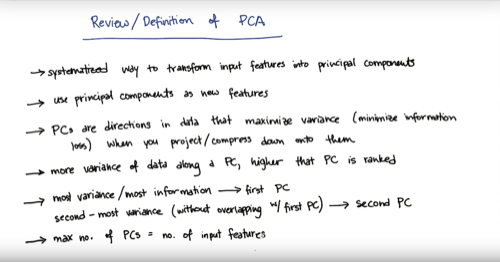 Review/Definition of PCA
→ systematized way to transform input features into principal components
→ use principal components as new features
→ PCs are directions in data that maximize variance (minimize information
loss) when you project/compress down onto them
→ more variance of data along a PC, higher that PC is ranked
→ most variance/most information → first PC
second-most variance (without overlapping w/ first PC) → second PC
→ max no. of PCs = no. of input features